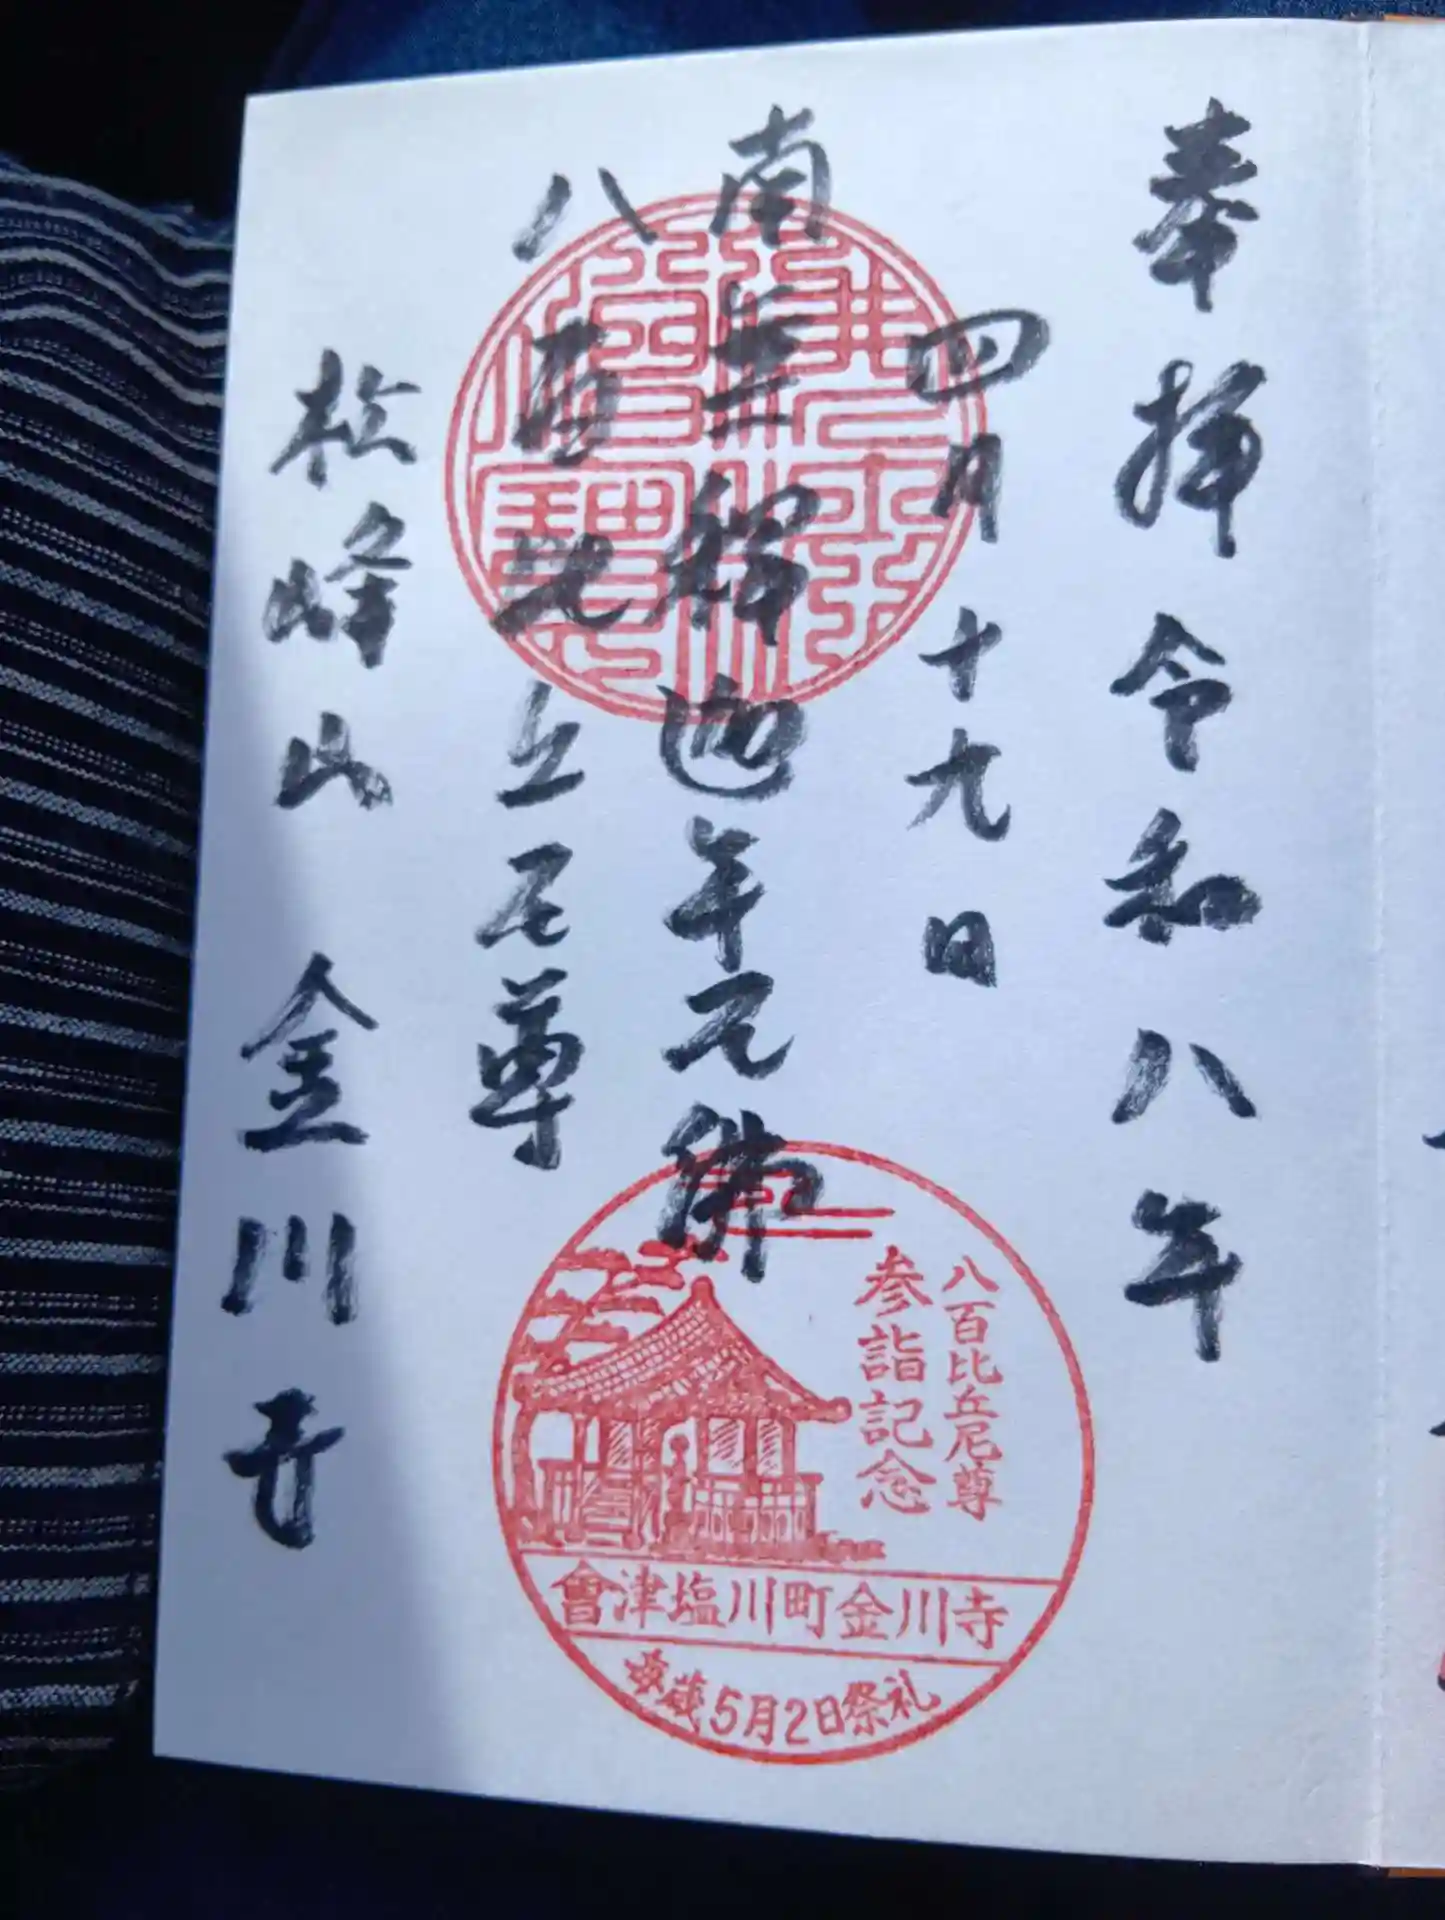 奉拝 令和八年
四月十九日
南無釋迦牟尼佛
八百比丘尼尊
松峰山 金川寺
八百比丘尼尊
参詣記念
會津塩川町金川寺
毎歳5月2日祭礼